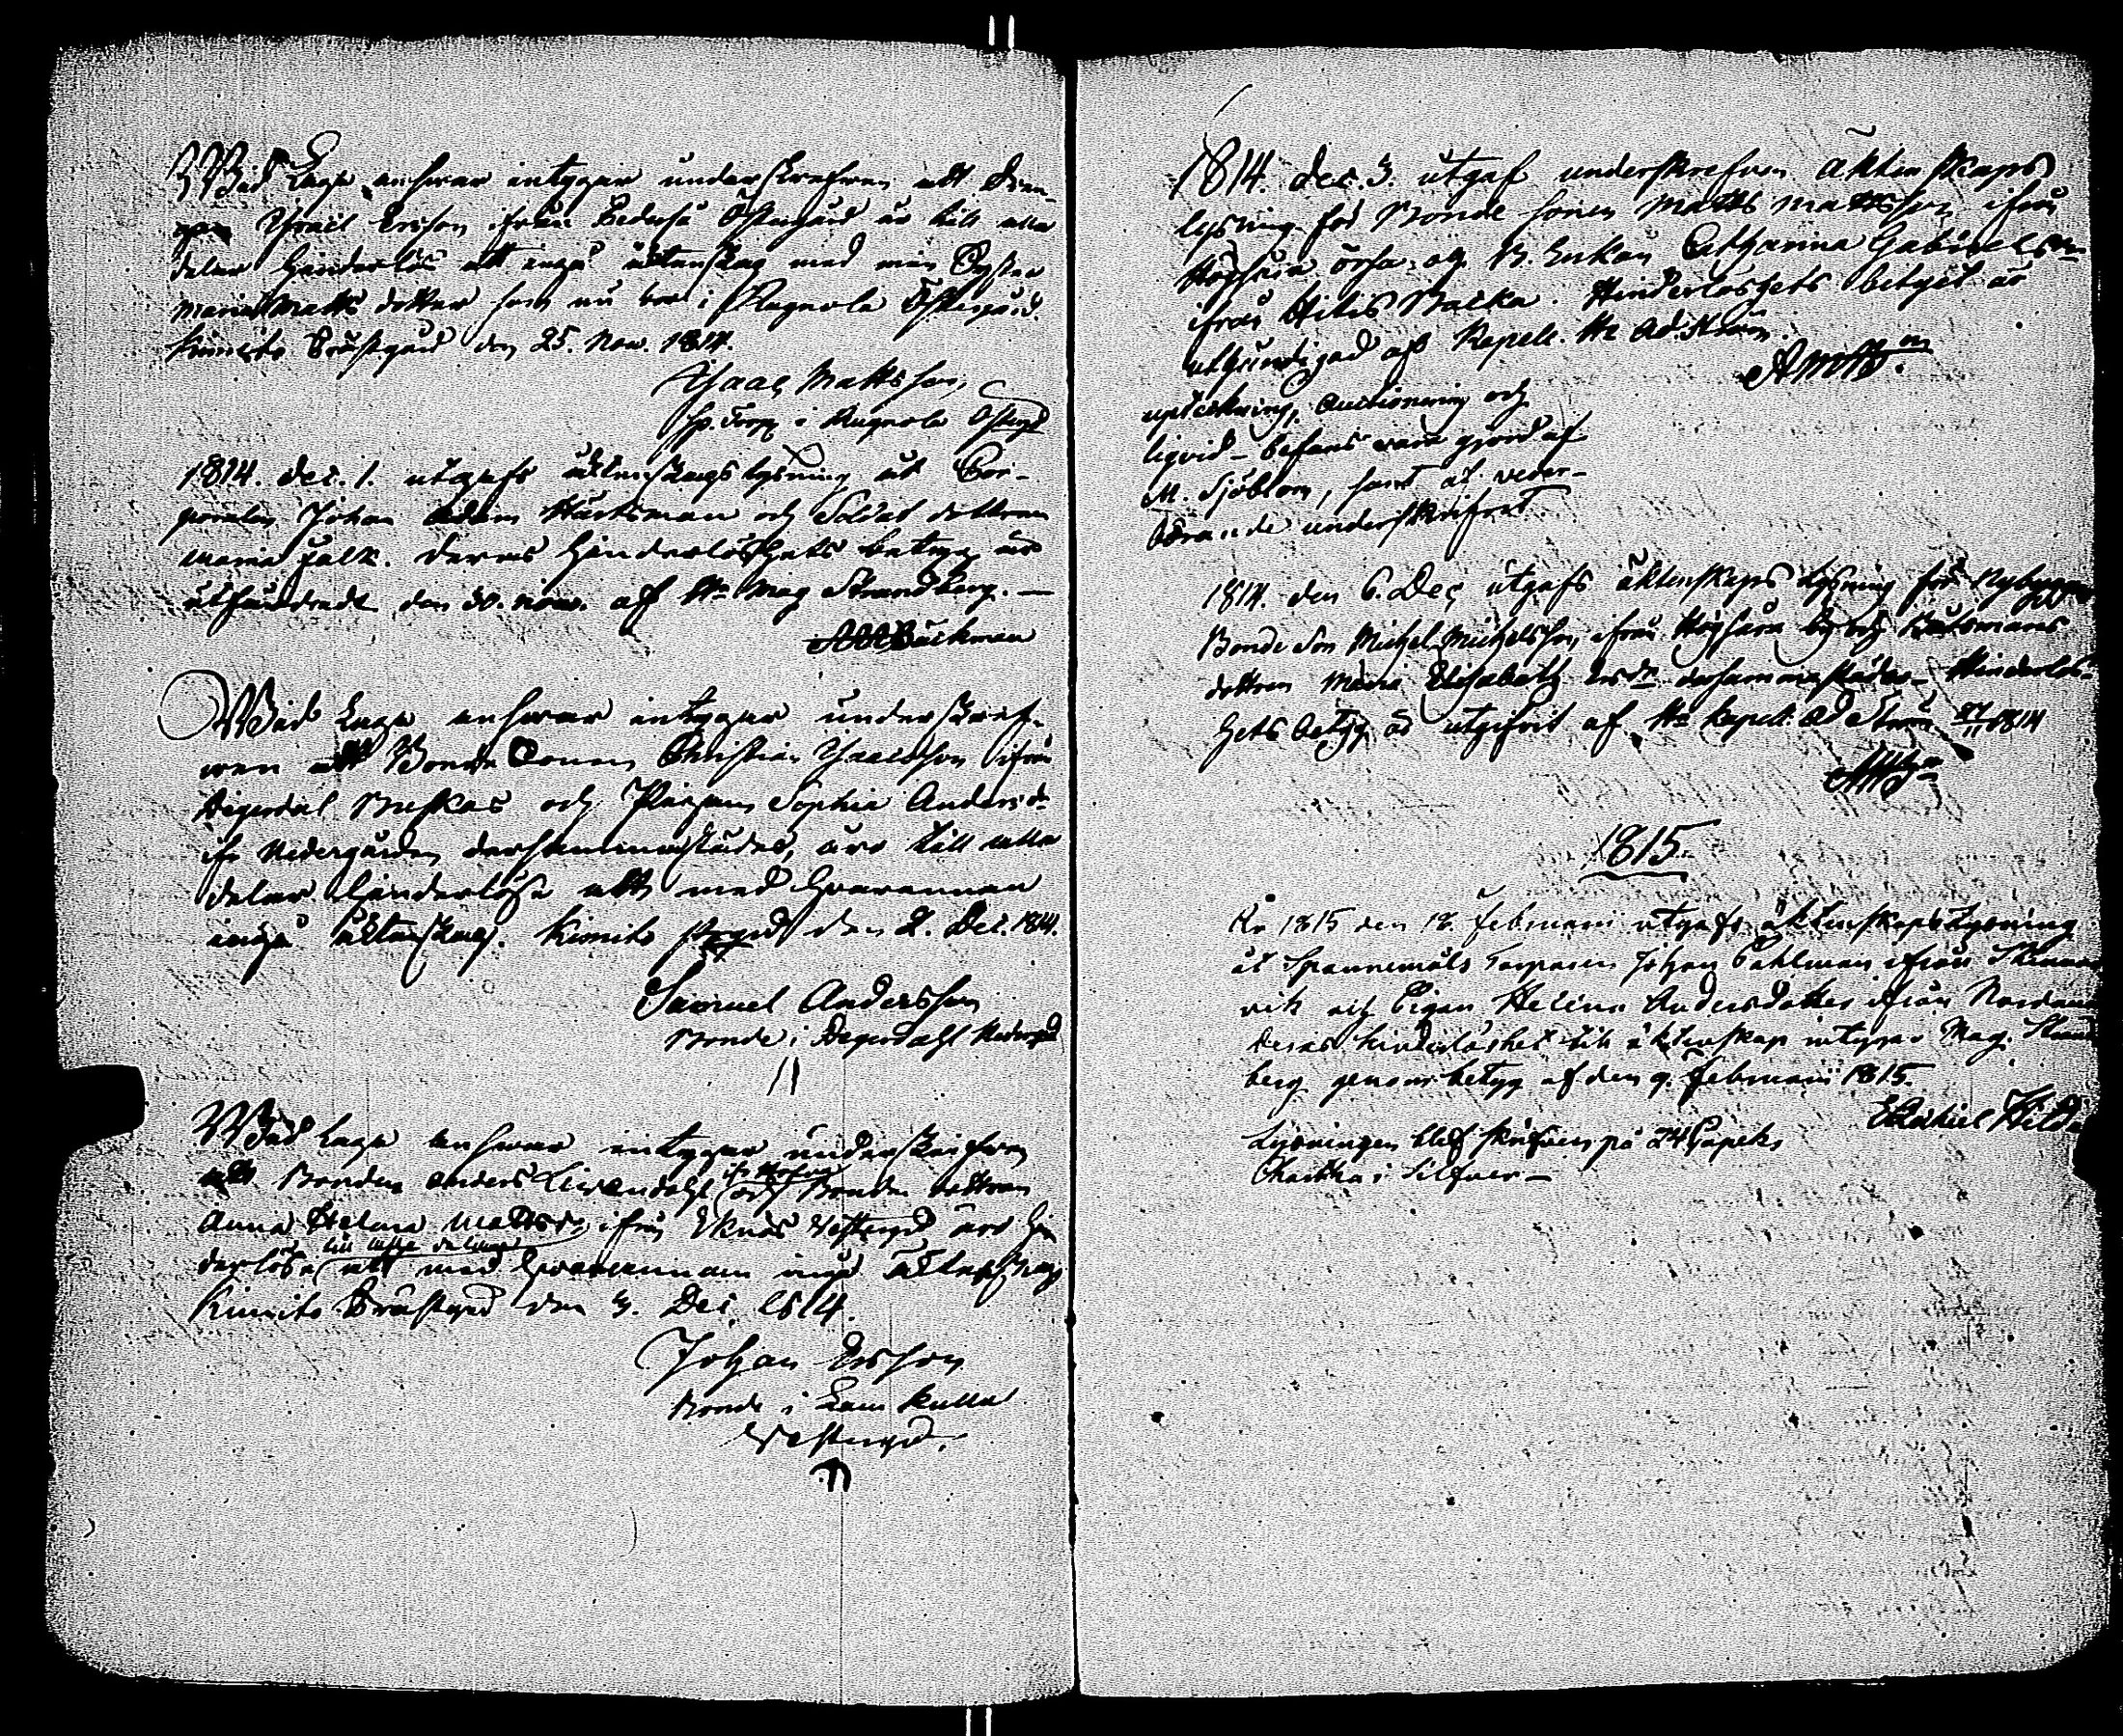 Wid Laga answar intygar underskrefwen att drän-
gen Israël Ersson ifrån Östergård är till alla
delar hinderlös att ingå äktenskap med min Syster
Maria Matts dotter som nu bor i Rugnola Östergård.
Kimito Prästgård den 25. Nov. 1814.
Isaac Mattsson,
i Rugnola Östergd
1814. dec. 1. utgafs äktenskaps lysning åt Cor-
poralen Johan Adam Hartman och Soldat dottren
Maria Falk. Deras hinderlöshets betyg är
utfärdadt den 30. nov. af Hr Mag Strandberg. —
Bäckman
Wid Laga answar intygar underskref-
wen att Bonde Sonen Christian Isacsson ifrån
Degerdal Buskas och Pigan Sophia Andersdr
ifr Nedergården dersammastädes, äro till alla
delar hinderlösa att med hwarannan
ingå äktenskap. Kimito prgrd den 2. Dec. 1814.
Samuel Andersson
Bonde i Degerdahl Nedergd
Wid Laga answar intygar underskrifwen
att Bonden Anders och Bonde dottren
Anna Helena Mattsdr ifrån Eknäs Westergd äro hin
till alla delar
derlösa att med hwarannan ingå äktenskap
Kimito Prästgrd den 3. Dec. 1814.
Johan Ersson
Bonde i Lam kulla
Westergd.
1814. dec. 3. utgaf underskrefwen äktenskaps
lysning för Bonde sonen Matts Mattsson ifrån
Högsåra och B. Enkan Catharina Gabrielsdr
ifrån Hitis Backa. Hinderlöshets betyget är
af Kapell. Hr Ad.
upteckning, Auctionering och
liqvid befans vara gjord af
M. Sjöblom, samt af veder-
börande underskrifvet
1814. den 6. Dec utgafs äktenskaps lysning för
Bonde Son Michel Michelsson ifrån Högsåra by och Båtsmans
dottren Maria Elisabeth Ersdr dersammastädes. Hinderlös-
hets betyg är utgifvit af Hr Kapell. Ad 1814
1815.
År 1815 den 18. Februarii utgafs äktenskaps Lysning
åt Spannemåls Torparen Johan Pahlman ifrån
vik och Pigan Helena Andersdotter ifrån
Deras hinderlöshet till äktenskap intygar Mag. Strand
berg genom betyg af den 9. Februarii 1815.
Lysningen blef skrifven på 24 Capeks
Chartha i Silfver —